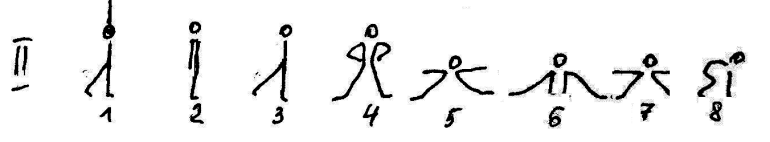 II
1 2 3 4 5 6 7 8